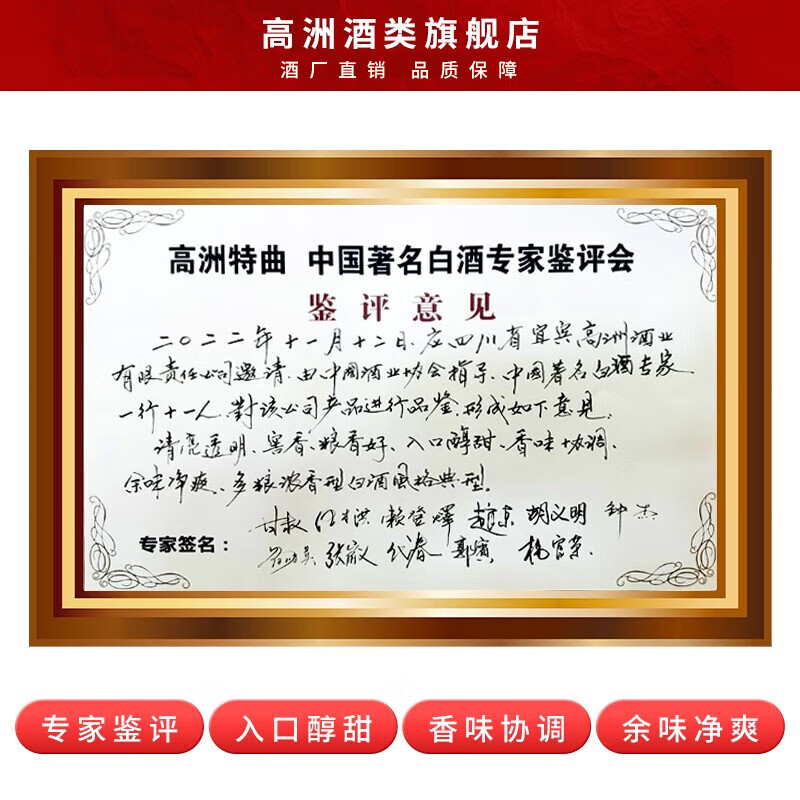 高洲酒类旗舰店
酒厂直销 品质保障
高洲特曲 中国著名白酒专家鉴评会
鉴评意见
二〇二二年十一月十二日、应四川省宜宾高洲酒业
有限责任公司邀请、由中国酒业协会指导、中国著名白酒专家
一行十一人、对该公司产品进行品鉴，形成如下意见。
清亮透明、窖香、粮香好、入口醇甜、香味协调、
余味净爽、多粮浓香型白酒风格典型。
赖登燡 胡义明 钟杰
专家签名：
代春 郭宾 杨官荣
专家鉴评
入口醇甜
香味协调
余味净爽